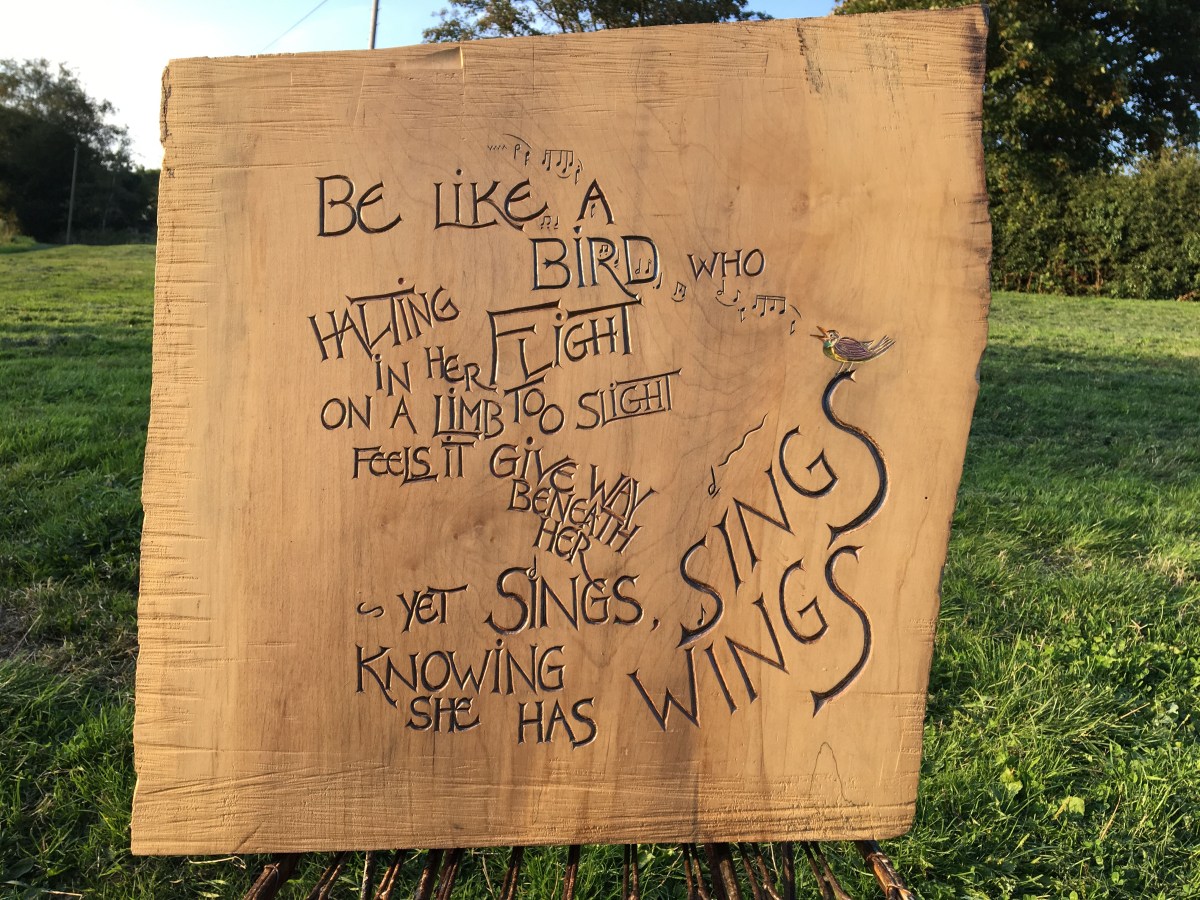 BE LIKE A
BIRD WHO
HALTING
IN HER FLIGHT
ON A LIMB TOO SLIGHT
FEELS IT GIVE WAY
BENEATH
HER
~ YET SINGS, SINGS
KNOWING
SHE HAS WINGS